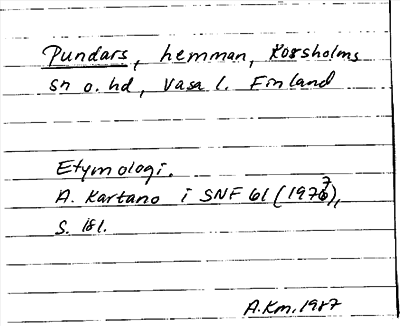 Pundars, hemman, Korsholms
sn o. hd, Vasa l. Finland
Etymologi.
A. Kartano i SNF 61 (1977),
s. 181.
A.Km. 1987